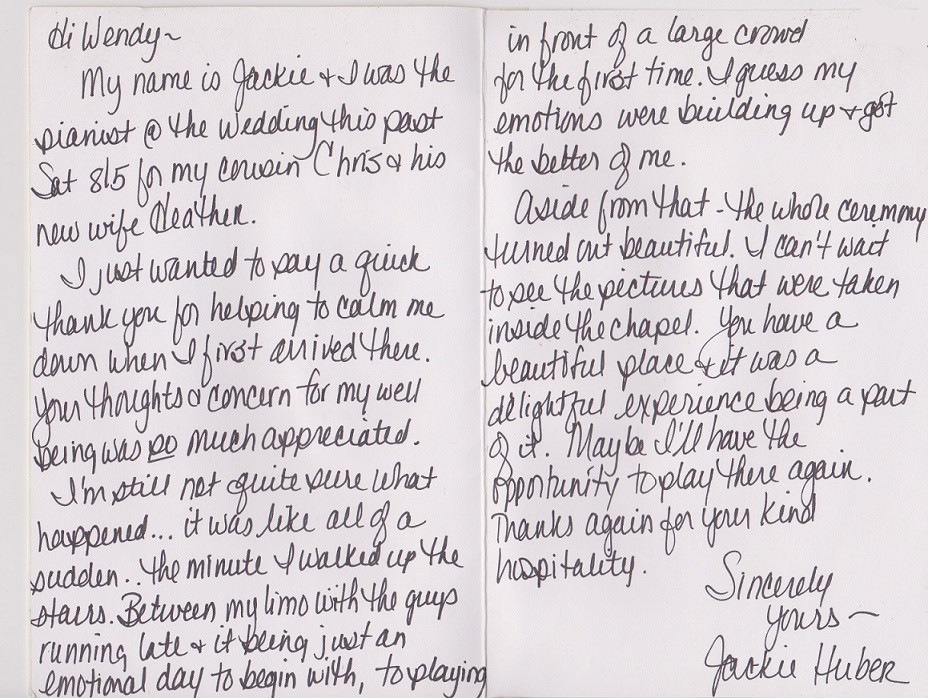 Hi Wendy~
My name is Jackie & I was the
pianist @ the wedding this past
Sat 8/5 for my cousin Chris & his
new wife Heather.
I just wanted to say a quick
thank you for helping to calm me
down when I first arrived there.
Your thoughts & concern for my well
being was so much appreciated.
I'm still not quite sure what
happened... it was like all of a
sudden.. the minute I walked up the
stairs. Between my limo with the guys
running late & it being just an
emotional day to begin with, to playing
in front of a large crowd
for the first time. I guess my
emotions were building up & got
the better of me.
Aside from that - the whole ceremony
turned out beautiful. I can't wait
to see the pictures that were taken
inside the chapel. You have a
beautiful place & it was a
delightful experience being a part
of it. Maybe I'll have the
opportunity to play there again.
Thanks again for your kind
hospitality.
Sincerely
yours~
Jackie Huber